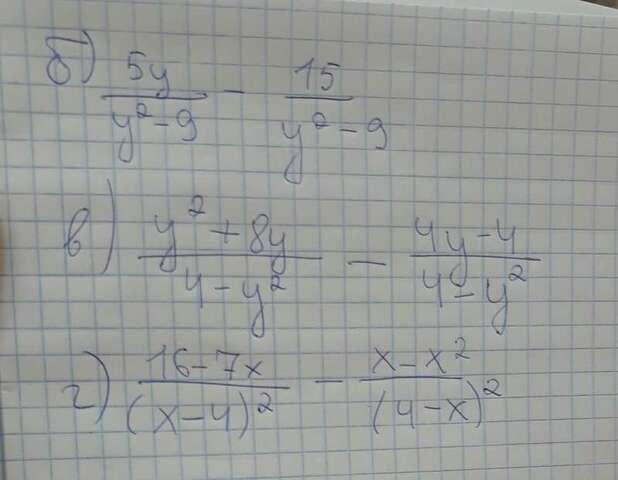 б) 5y/(y² - 9) - 15/(y² - 9)
в) (y² + 8y)/(4 - y²) - (4y - 4)/(4 - y²)
г) (16 - 7x)/(x - 4)² - (x - x²)/(4 - x)²